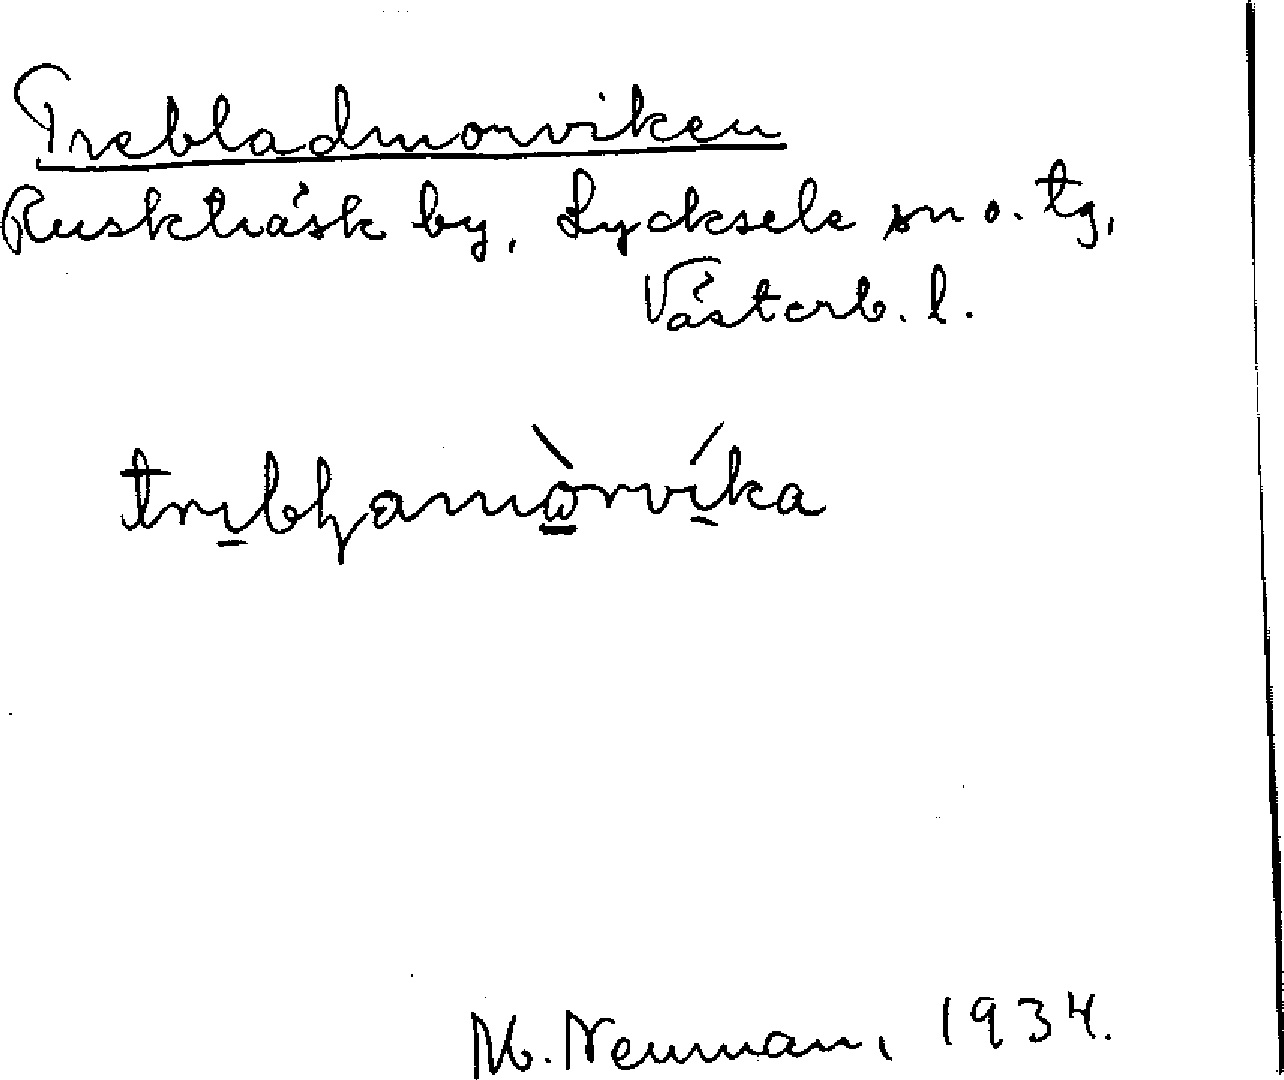 Trebladmorviken
Ruskträsk by, Lycksele sn o. tg,
Västerb. l.
tribḷamòrvíka
M. Neuman, 1934.